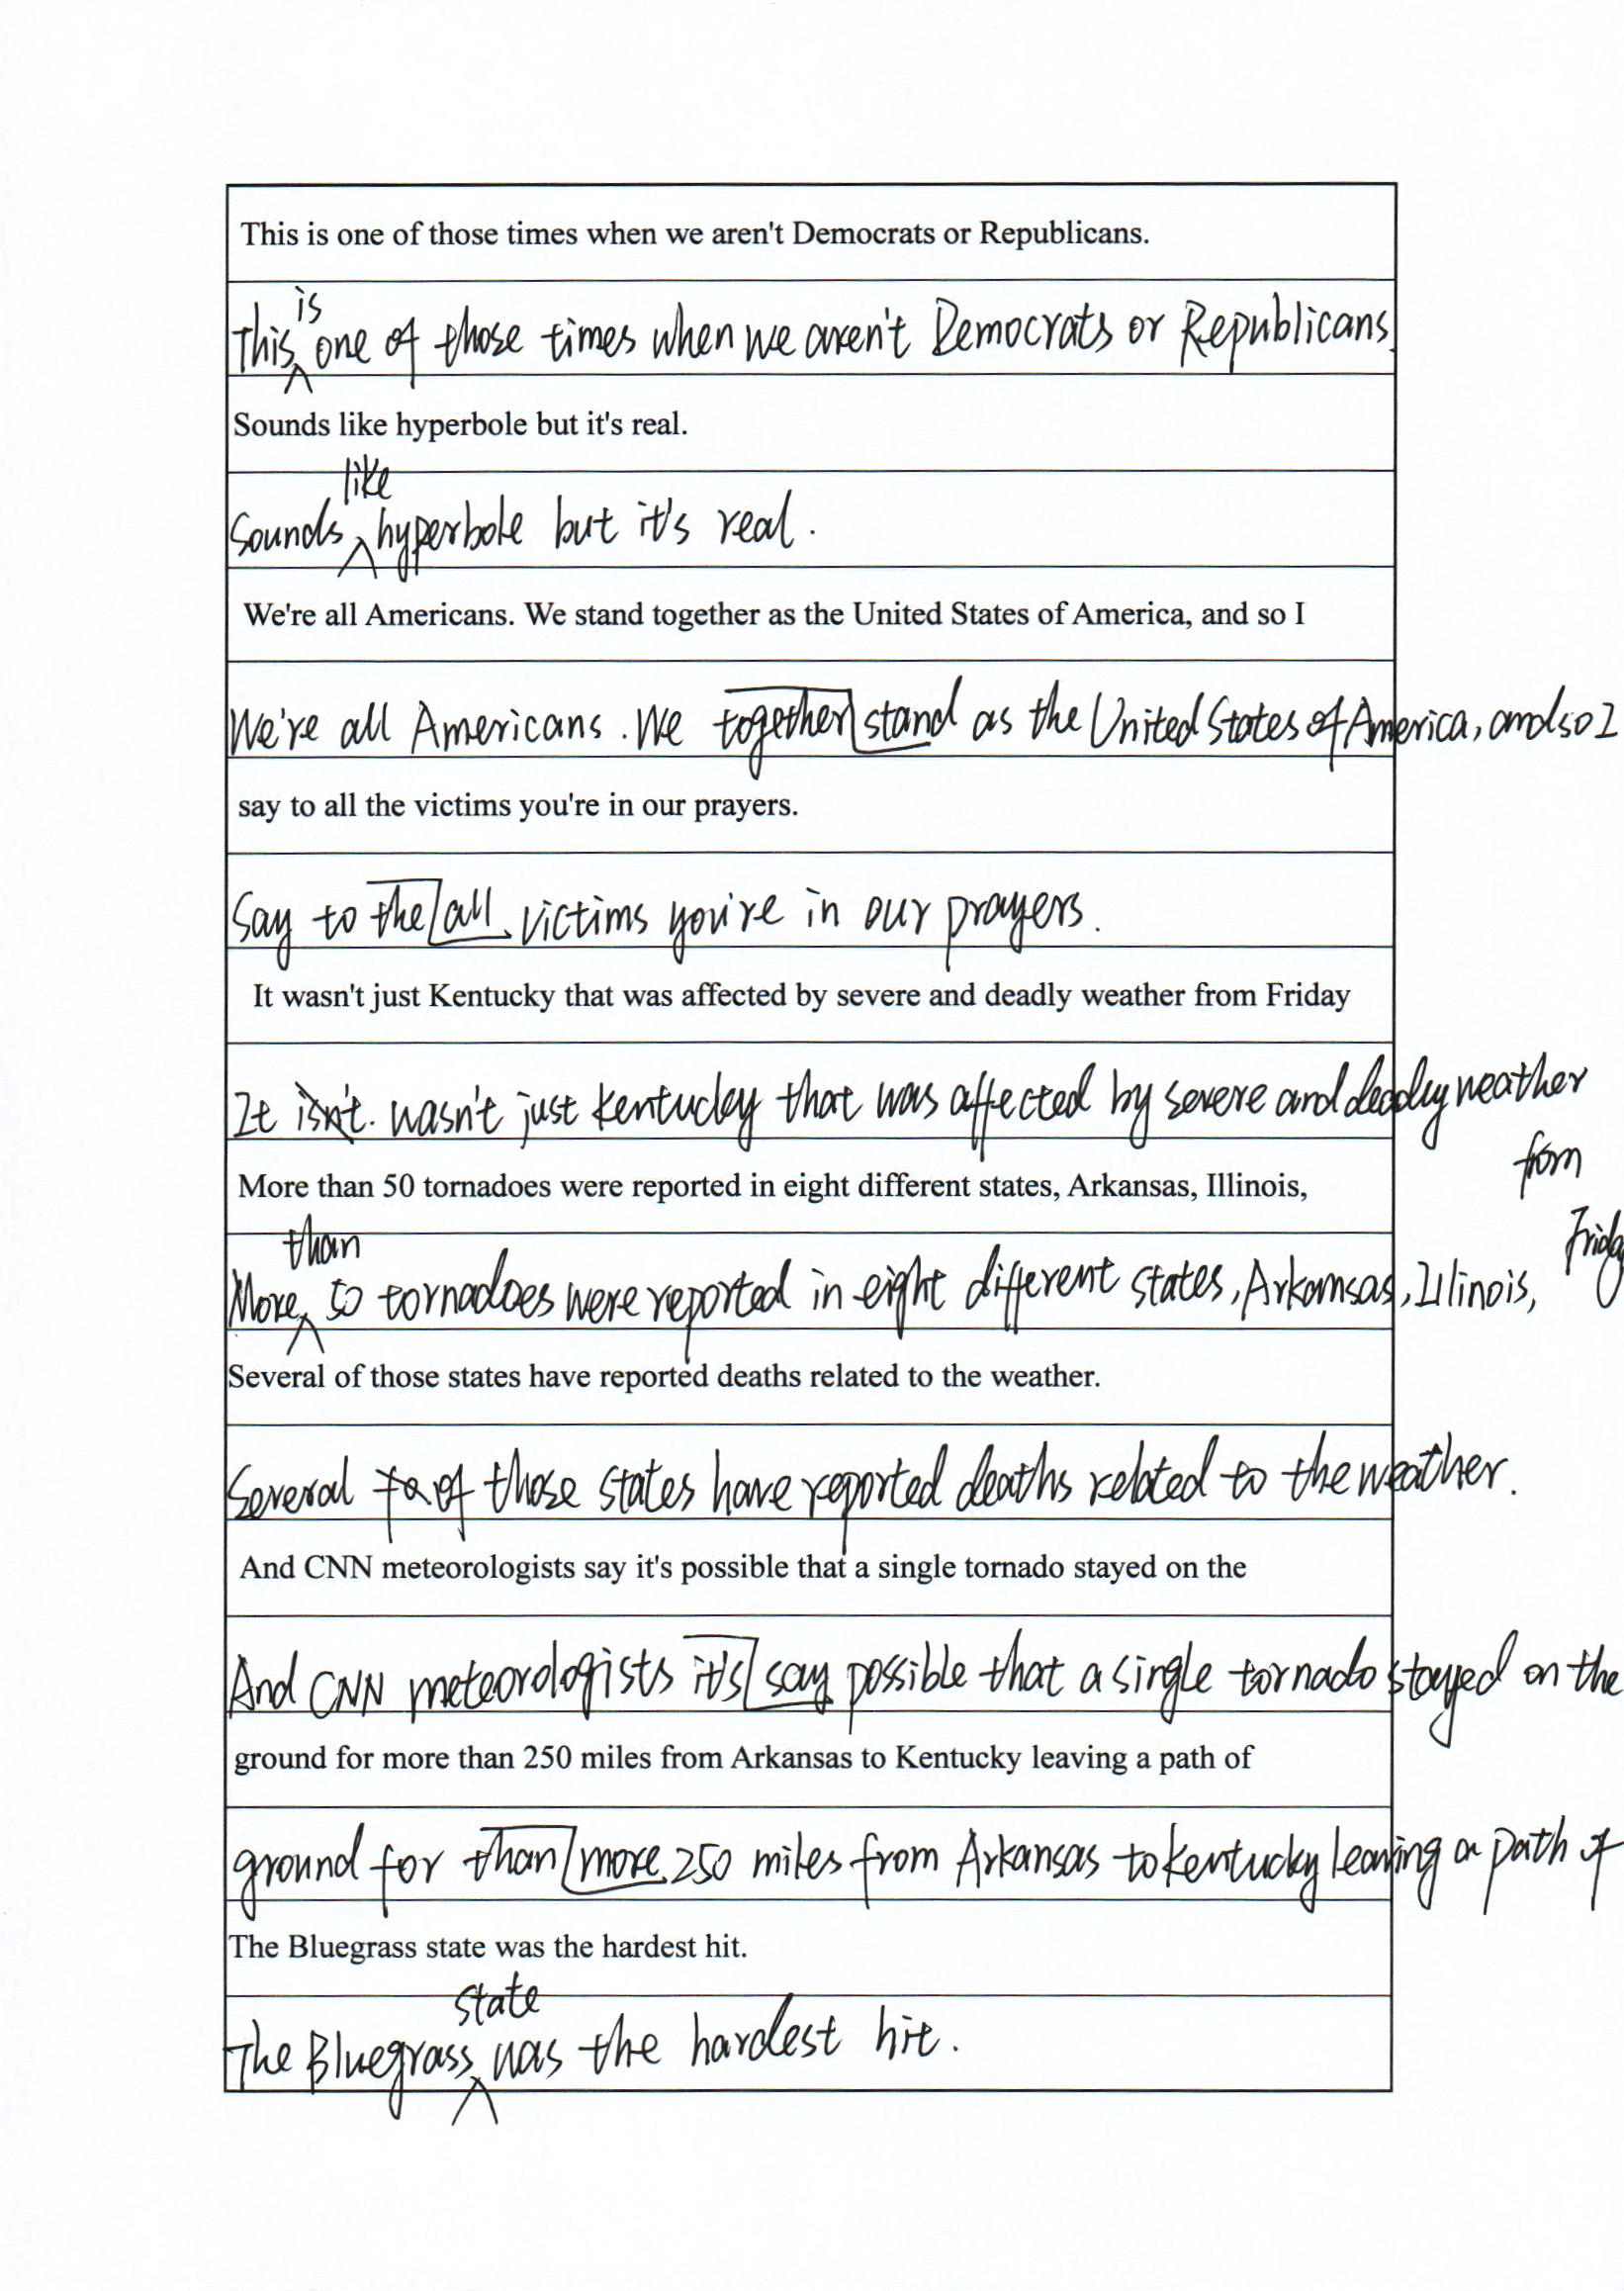 This is one of those times when we aren't Democrats or Republicans.
This is one of those times when we aren't Democrats or Republicans.
Sounds like hyperbole but it's real.
Sounds like hyperbole but it's real.
We're all Americans. We stand together as the United States of America, and so I
We're all Americans. We together stand as the United States of America, and so I
say to all the victims you're in our prayers.
Say to the all victims you're in our prayers.
It wasn't just Kentucky that was affected by severe and deadly weather from Friday
It wasn't just Kentucky that was affected by severe and deadly weather
from
Friday
More than 50 tornadoes were reported in eight different states, Arkansas, Illinois,
More than 50 tornadoes were reported in eight different states, Arkansas, Illinois,
Several of those states have reported deaths related to the weather.
Several of those states have reported deaths related to the weather.
And CNN meteorologists say it's possible that a single tornado stayed on the
And CNN meteorologists it's say possible that a single tornado stayed on the
ground for more than 250 miles from Arkansas to Kentucky leaving a path of
ground for than more 250 miles from Arkansas to Kentucky leaving a path of
The Bluegrass state was the hardest hit.
The Bluegrass state was the hardest hit.